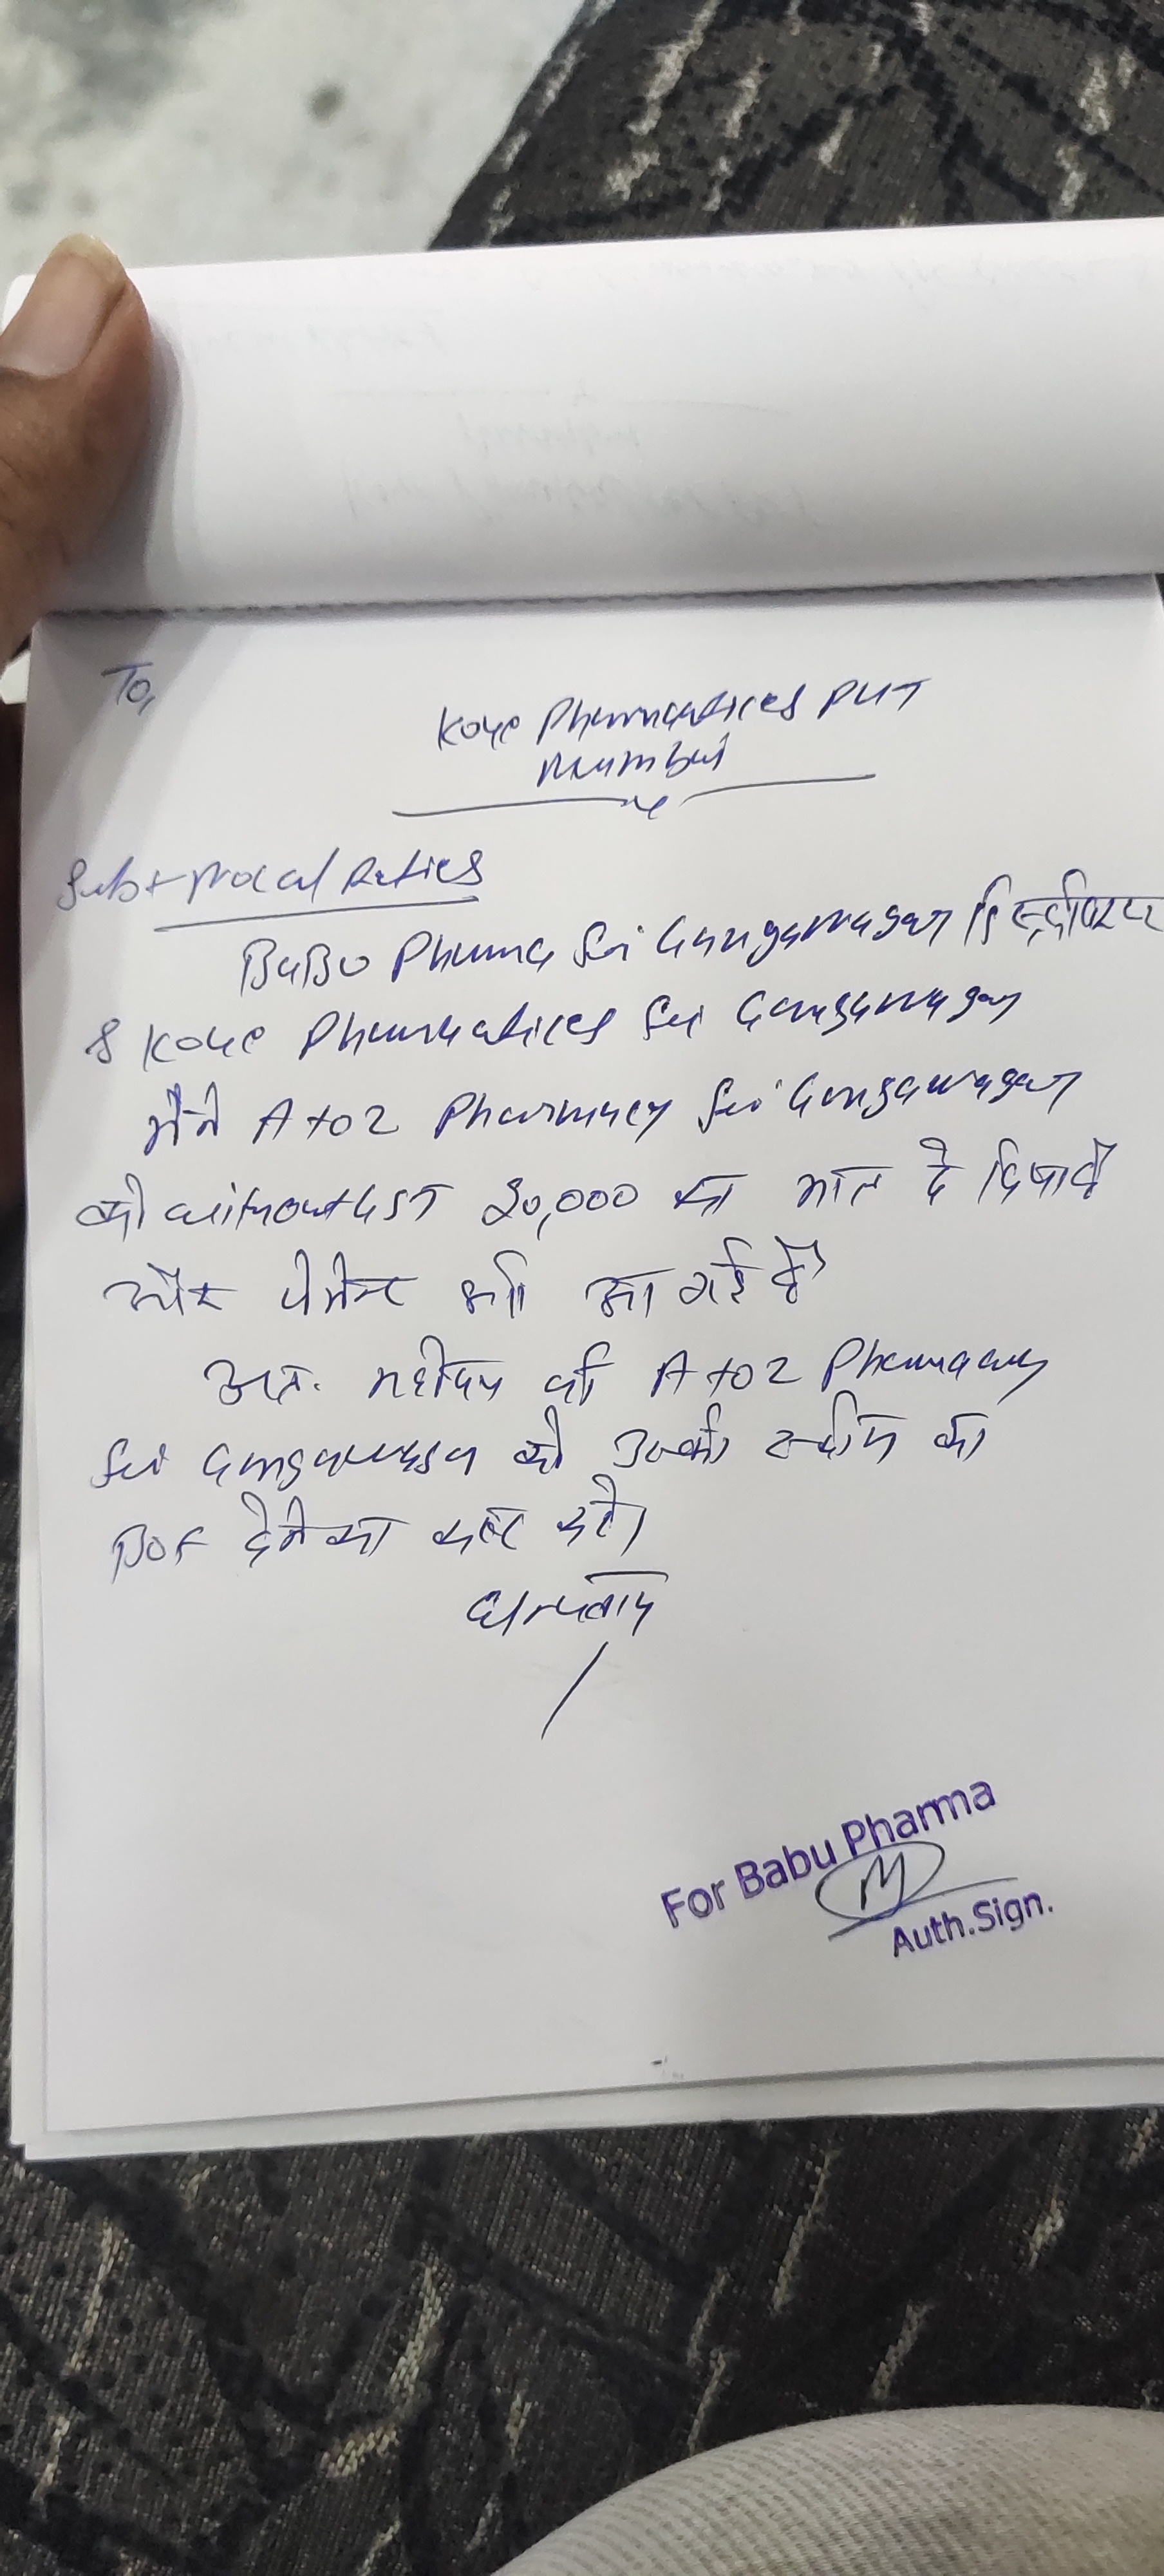 To,
Koye Pharmaceutices PVT
Mumbai
Sub+
BaBU Pharma Sri Ganganagar डिस्ट्रीब्यूटर
& Koye Pharmaceutices Sri Ganganagar
मैंने A to Z Pharmacy Sri Ganganagar
को without GST 20,000 का माल दे दिया है
और पेमेन्ट भी आ गई है
अतः महोदय जी A to Z Pharmacy
Sri Ganganagar को उनकी स्कीम का
देने का कष्ट करे।
धन्यवाद
For Babu Pharma
Auth.Sign.